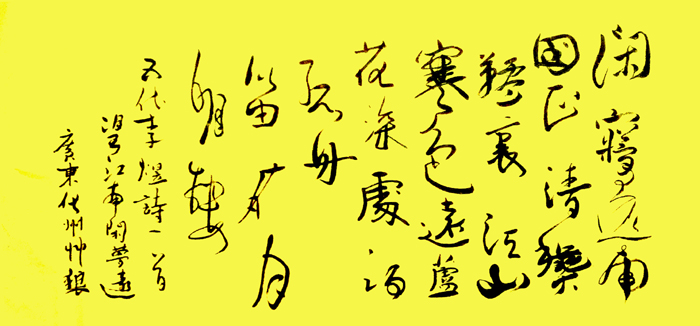 閑夢遠南
國正清龝
韆裏江山
寒色遠蘆
花深處泊
孤舟
笛在月
明樓
五代李煜詩一首
望江南閑夢遠
廣東化州艸